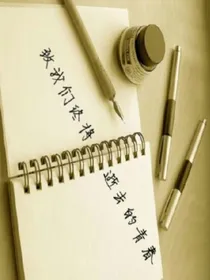 致我们终将
逝去的青春